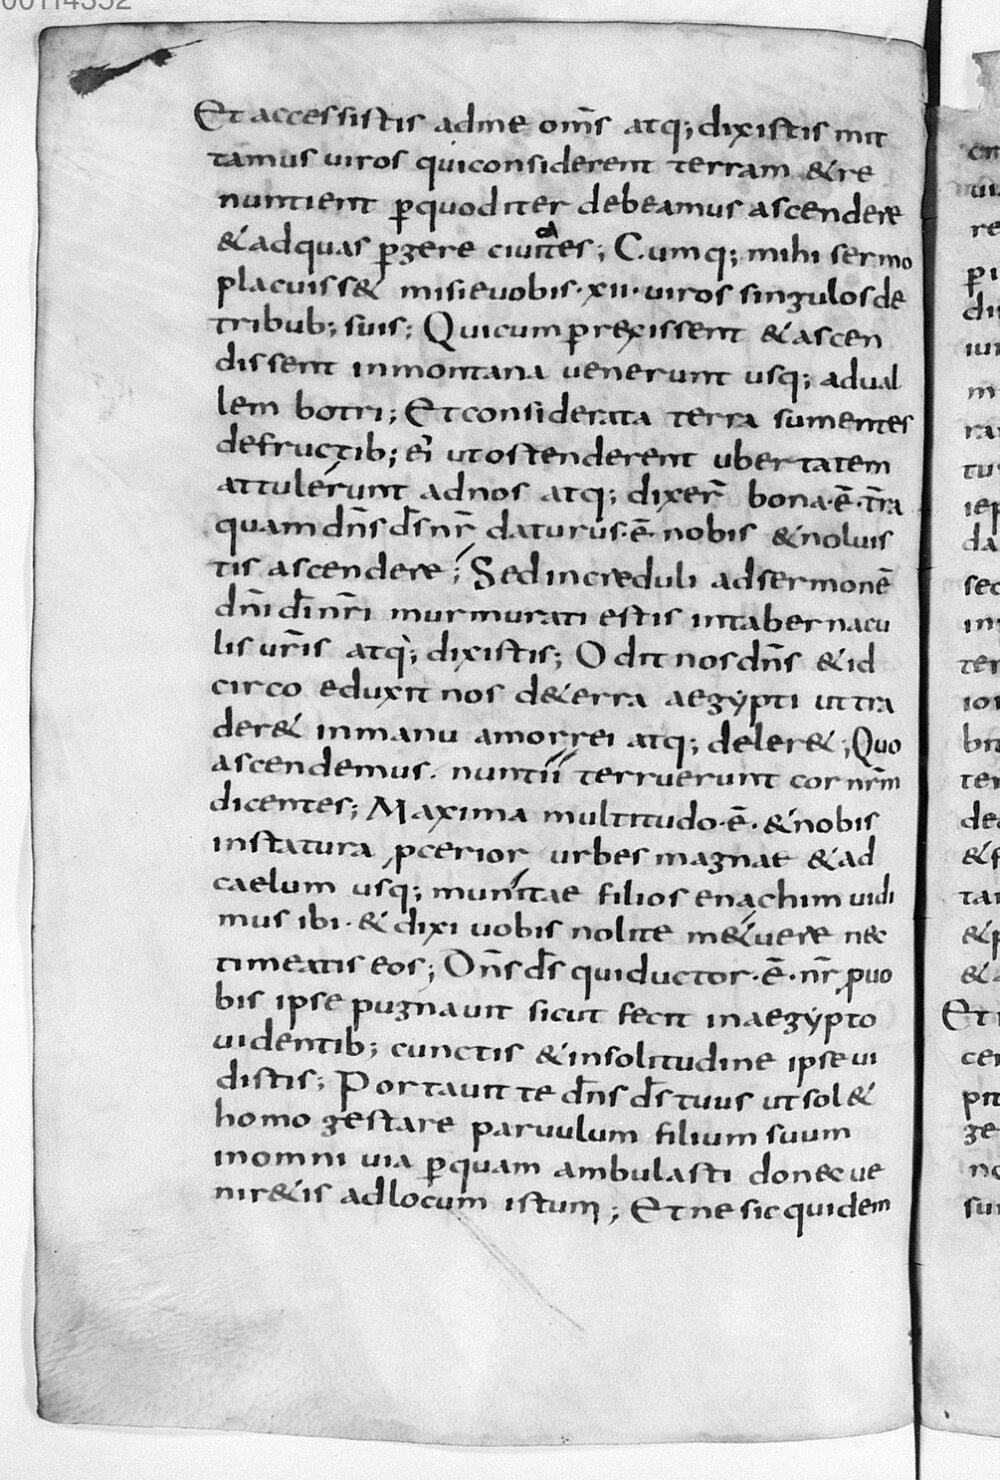 00114352
Et accessistis adme om̄s atq; dixistis mit
tamus uiros quiconsiderent terram &re
nuntient ꝑquod iter debeamus ascendere
&adquas ꝑgere ciuitates; Cumq; mihi sermo
placuiss& misi euobis·xii·uiros singulos de
tribub; suis; Quicum prexissent &ascen
dissent inmontana uenerunt usq; adual
lem botri; Et considerata terra sumentes
defructib; ei' ut ostenderent ubertatem
attulerunt adnos atq; dixer̄ bona·ē·tr̄a
quam dn̄s d̄s nr̄ daturus·ē·nobis &noluis
tis ascendere; Sed increduli adsermonē
dn̄i d̄i nr̄i murmurati estis intabernacu
lis ur̄is atq; dixistis; Odit nos dn̄s &id
circo eduxit nos de&erra aegẏpti ut tra
der& inmanu amorrei atq; deler&; Quo
ascendemus. nuntii terruerunt cor nr̄m
dicentes; Maxima multitudo·ē·&nobis
instatura ꝓcerior urbes magnae &ad
caelum usq; munitae filios enachim uidi
mus ibi·& dixi uobis nolite m&uere nec
timeatis eos; Dn̄s d̄s qui ductor·ē·nr̄ ꝓuo
bis ipse pugnauit sicut fecit inaegẏpto
uidentib; cunctis &insolitudine ipse ui
distis; Portauit te dn̄s d̄s tuus ut sol&
homo gestare paruulum filium suum
inomni uia ꝑquam ambulasti donec ue
nir&is adlocum istum; Et ne sic quidem